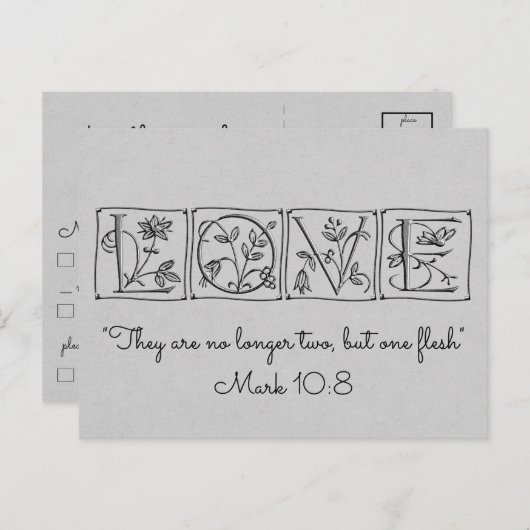 LOVE
"They are no longer two, but one flesh"
Mark 10:8
place